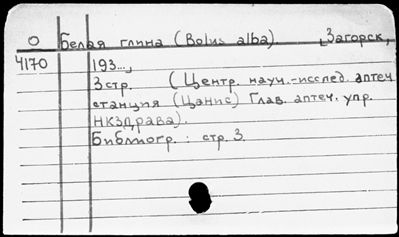 О Белая глина (Bolus alba). [Загорск,
4170 193...,
3 стр. (Центр. науч.-исслед. аптеч
станция (Цанис) Глав. аптеч. упр.
НКЗДРАВА).
Библиогр.: стр. 3.